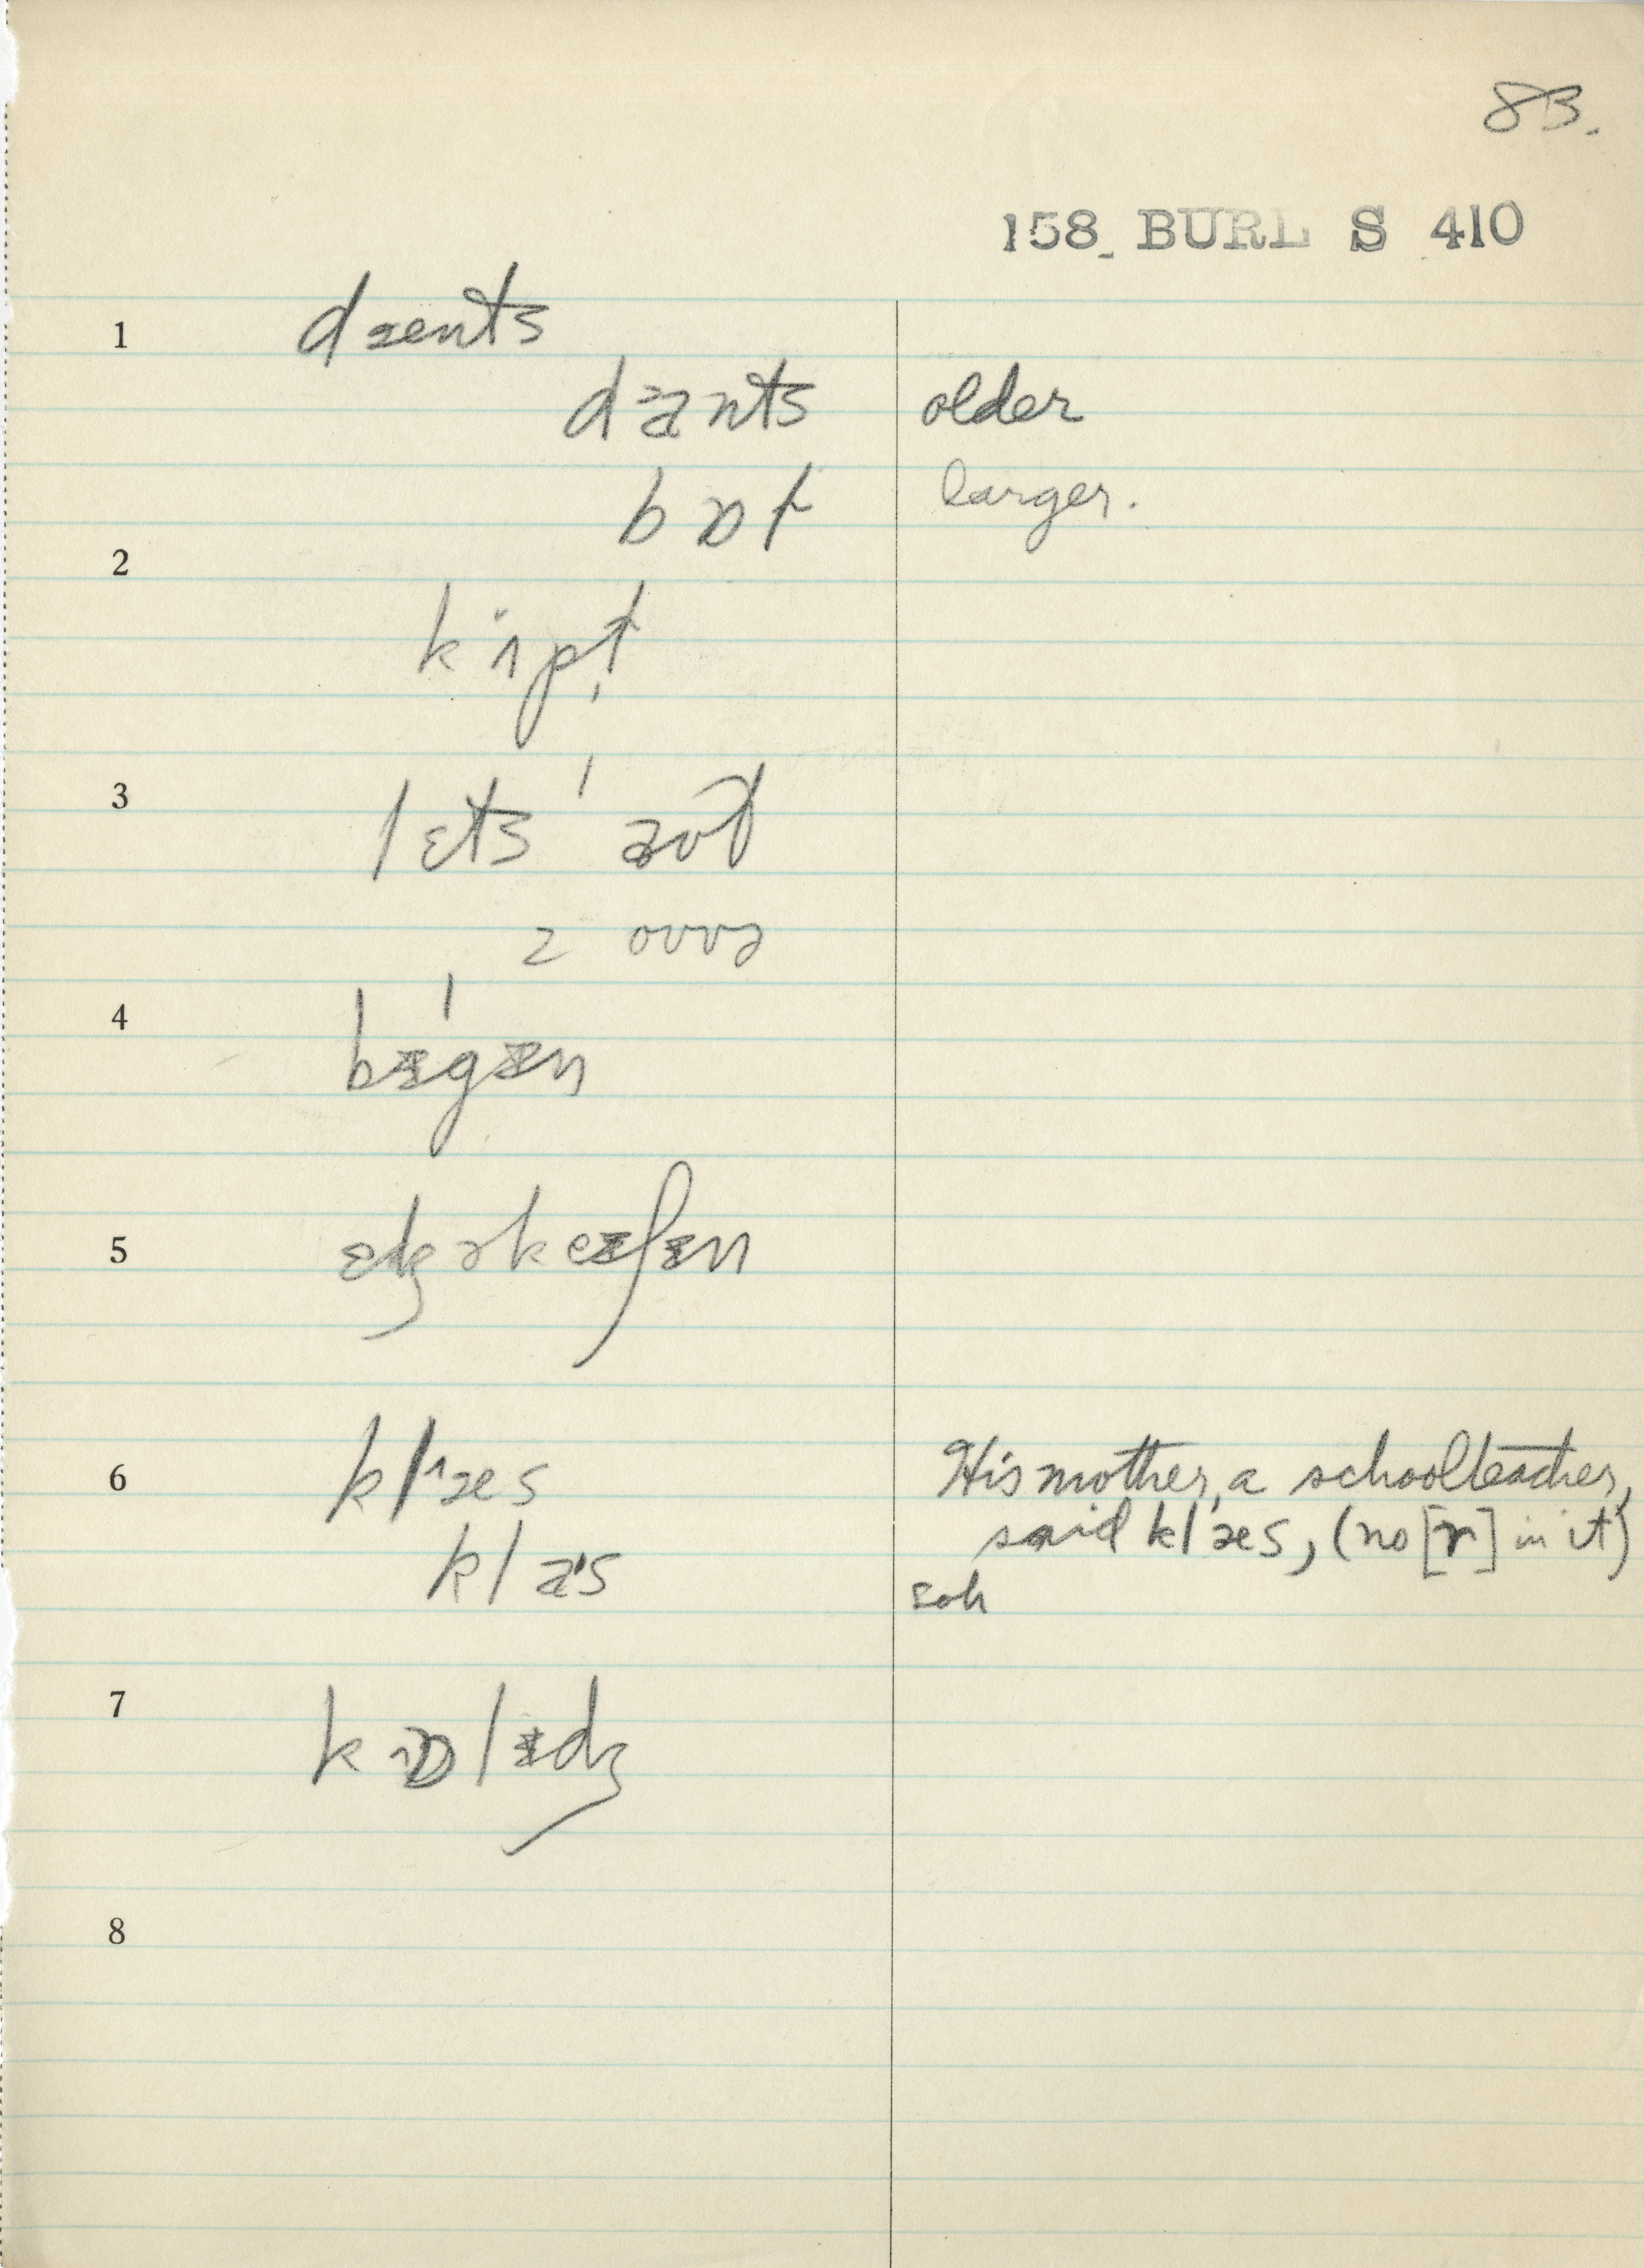 83.
158 BURL S 410
1 dænts
da̵nts older
bɒl larger.
2 kɪpt
3 lɛts aʊt
z oʊvə
4 bɪgɪn
5 ɛdʒəkeɪʃɪn
6 klæs His mother, a schoolteacher,
klas said klæs, (no [r] in it)
soh
7 kɒlɪdʒ
8